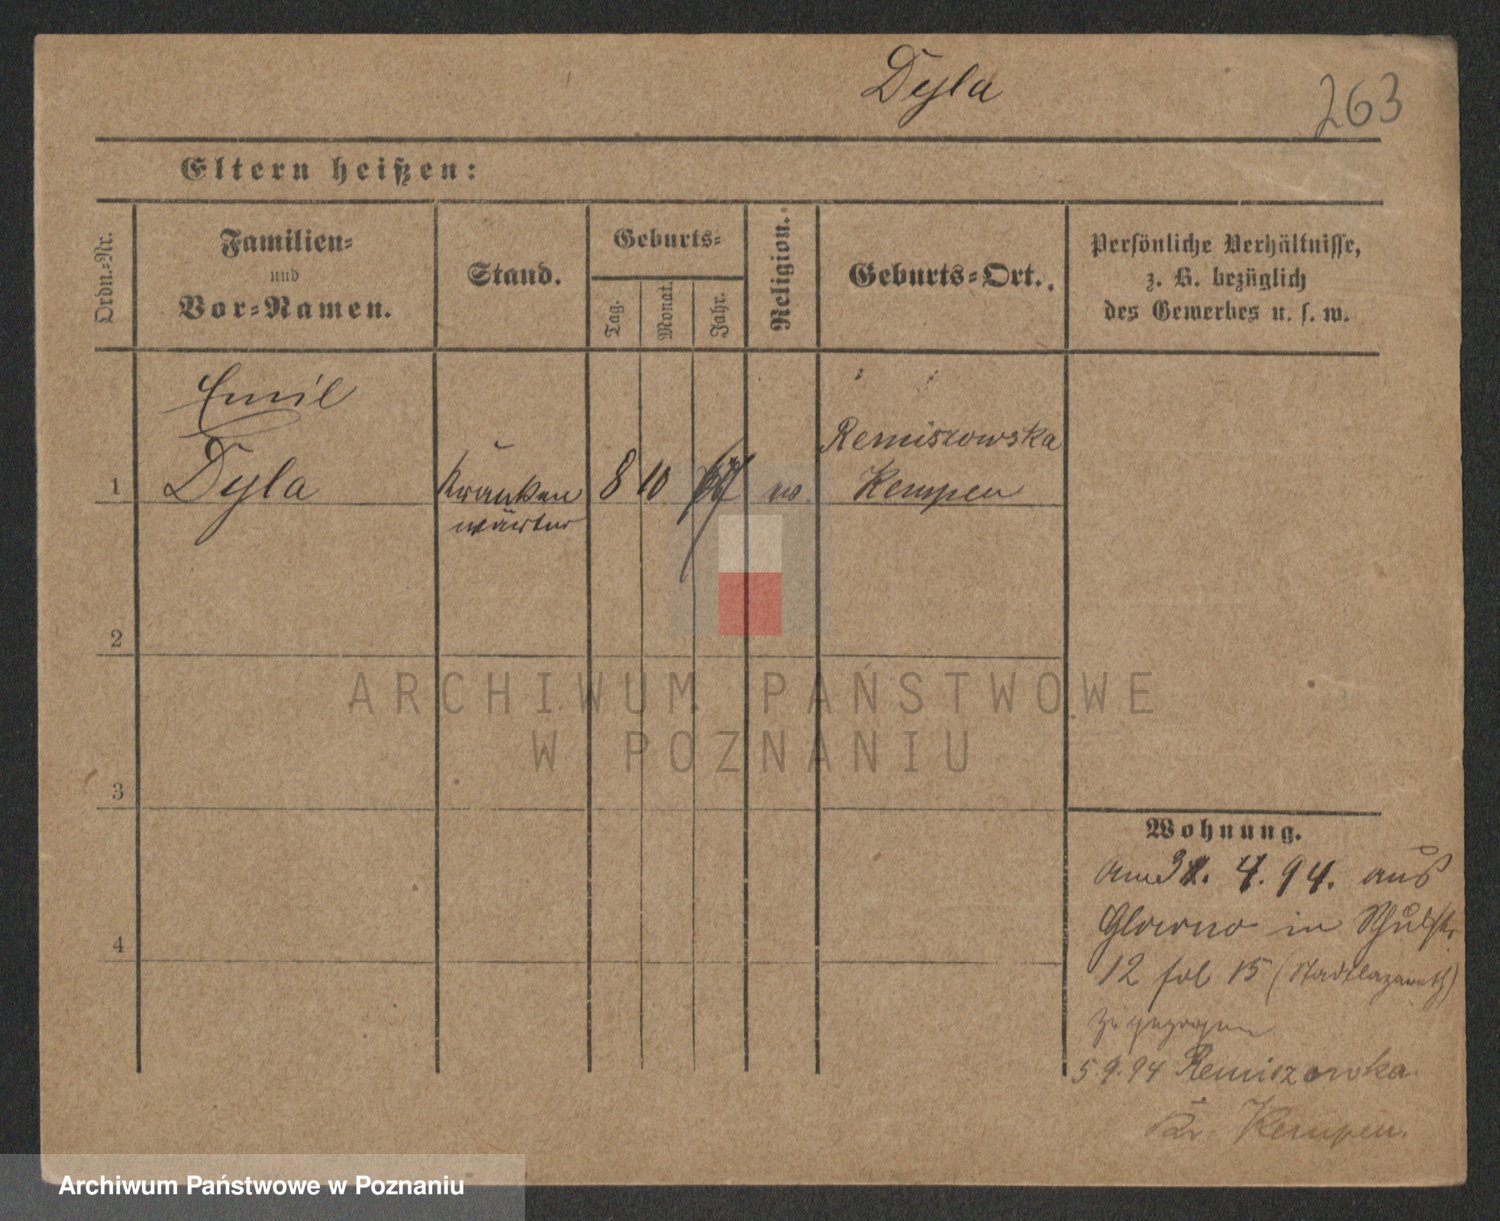 Dyla
263
Eltern heißen:
Ordn.-Nr.
Familien-
und
Vor-Namen.
Stand.
Geburts-
Tag.
Monat.
Jahr.
Religion.
Geburts-Ort.
Persönliche Verhältnisse,
z. B. bezüglich
des Gewerbes u. s. w.
Emil
Dyla
1
Kranken
wärter
8
10
Remiszowska
Kempen
2
3
4
ARCHIWUM PAŃSTWOWE
W POZNANIU
Wohnung.
Am 4. 94. aus
Glowno in Schulstr.
12 fol 15 (Stadtlazareth)
zugezogen
5.9.94 Remiszowka
Kr. Kempen.
Archiwum Państwowe w Poznaniu